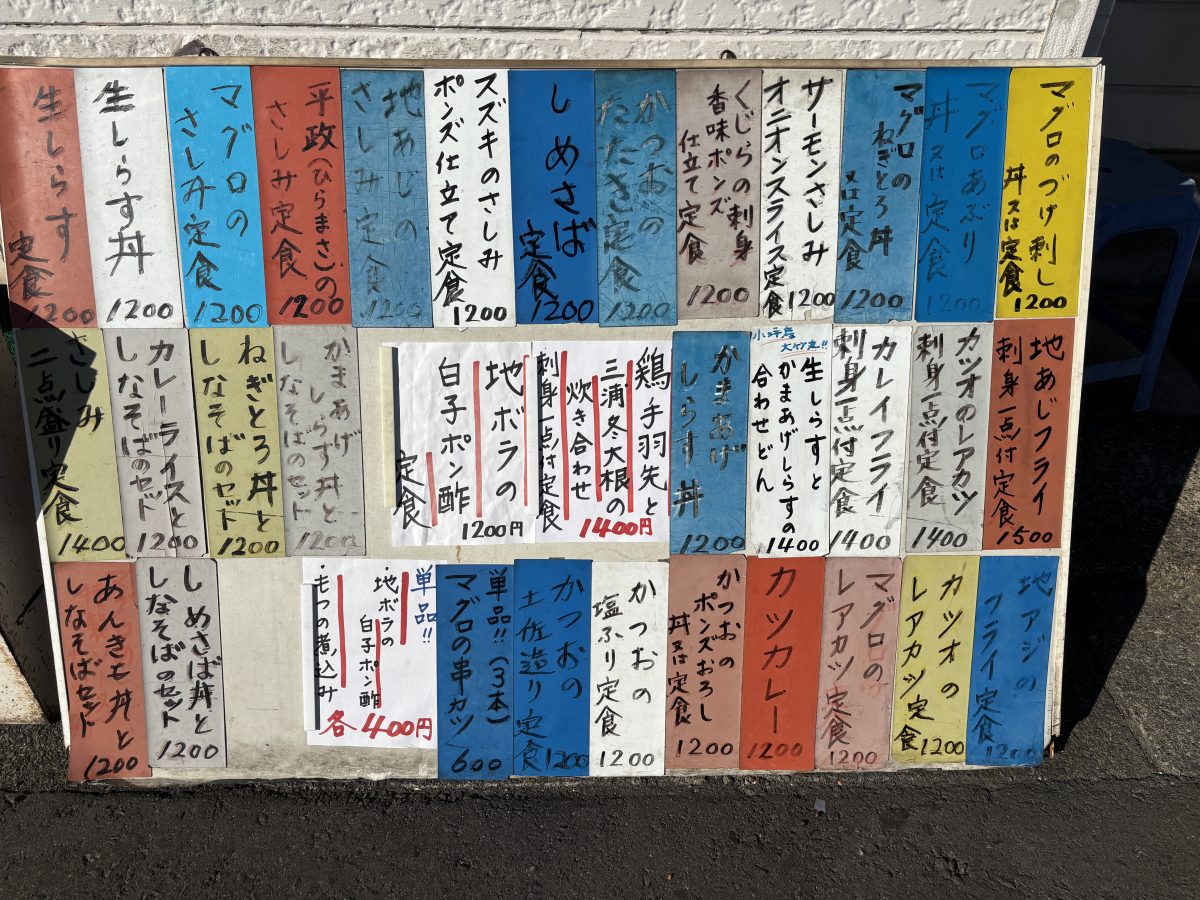 マグロのづけ刺し
丼又は定食
1200
マグロあぶり
丼又は定食
1200
マグロの
ねぎとろ丼
又は定食
1200
サーモンさしみ
オニオンスライス定食
1200
くじらの刺身
香味ポンズ
仕立て定食
1200
かつおの
たたき定食
1200
しめさば
定食
1200
スズキのさしみ
ポンズ仕立て定食
1200
地あじの
さしみ定食
1200
平政(ひらまさ)の
さしみ定食
1200
マグロの
さしみ定食
1200
生しらす丼
1200
生しらす
定食
1200
地あじフライ
刺身一点付定食
1500
カツオのレアカツ
刺身一点付定食
1400
カレイフライ
刺身一点付定食
1400
小坪産
大竹丸!!
生しらすと
かまあげしらすの
合わせどん
1400
かまあげ
しらす丼
1200
鶏手羽先と
三浦冬大根の
炊き合わせ
刺身一点付定食
1400円
地ボラの
白子ポン酢
定食
1200円
かまあげ
しらず丼と
しなそばのセット
1200
ねぎとろ丼と
しなそばのセット
1200
カレーライスと
しなそばのセット
1200
さしみ
二点盛り定食
1400
地アジの
フライ定食
1200
カツオの
レアカツ定食
1200
マグロの
レアカツ定食
1200
カツカレー
1200
かつおの
ポンズおろし
丼又は定食
1200
かつおの
塩ふり定食
1200
かつおの
土佐造り定食
1200
単品!!(3本)
マグロの串カツ
600
単品!!
・地ボラの
白子ポン酢
・もつの煮込み
各400円
しめさば丼と
しなそばのセット
1200
あんきも丼と
しなそばセット
1200